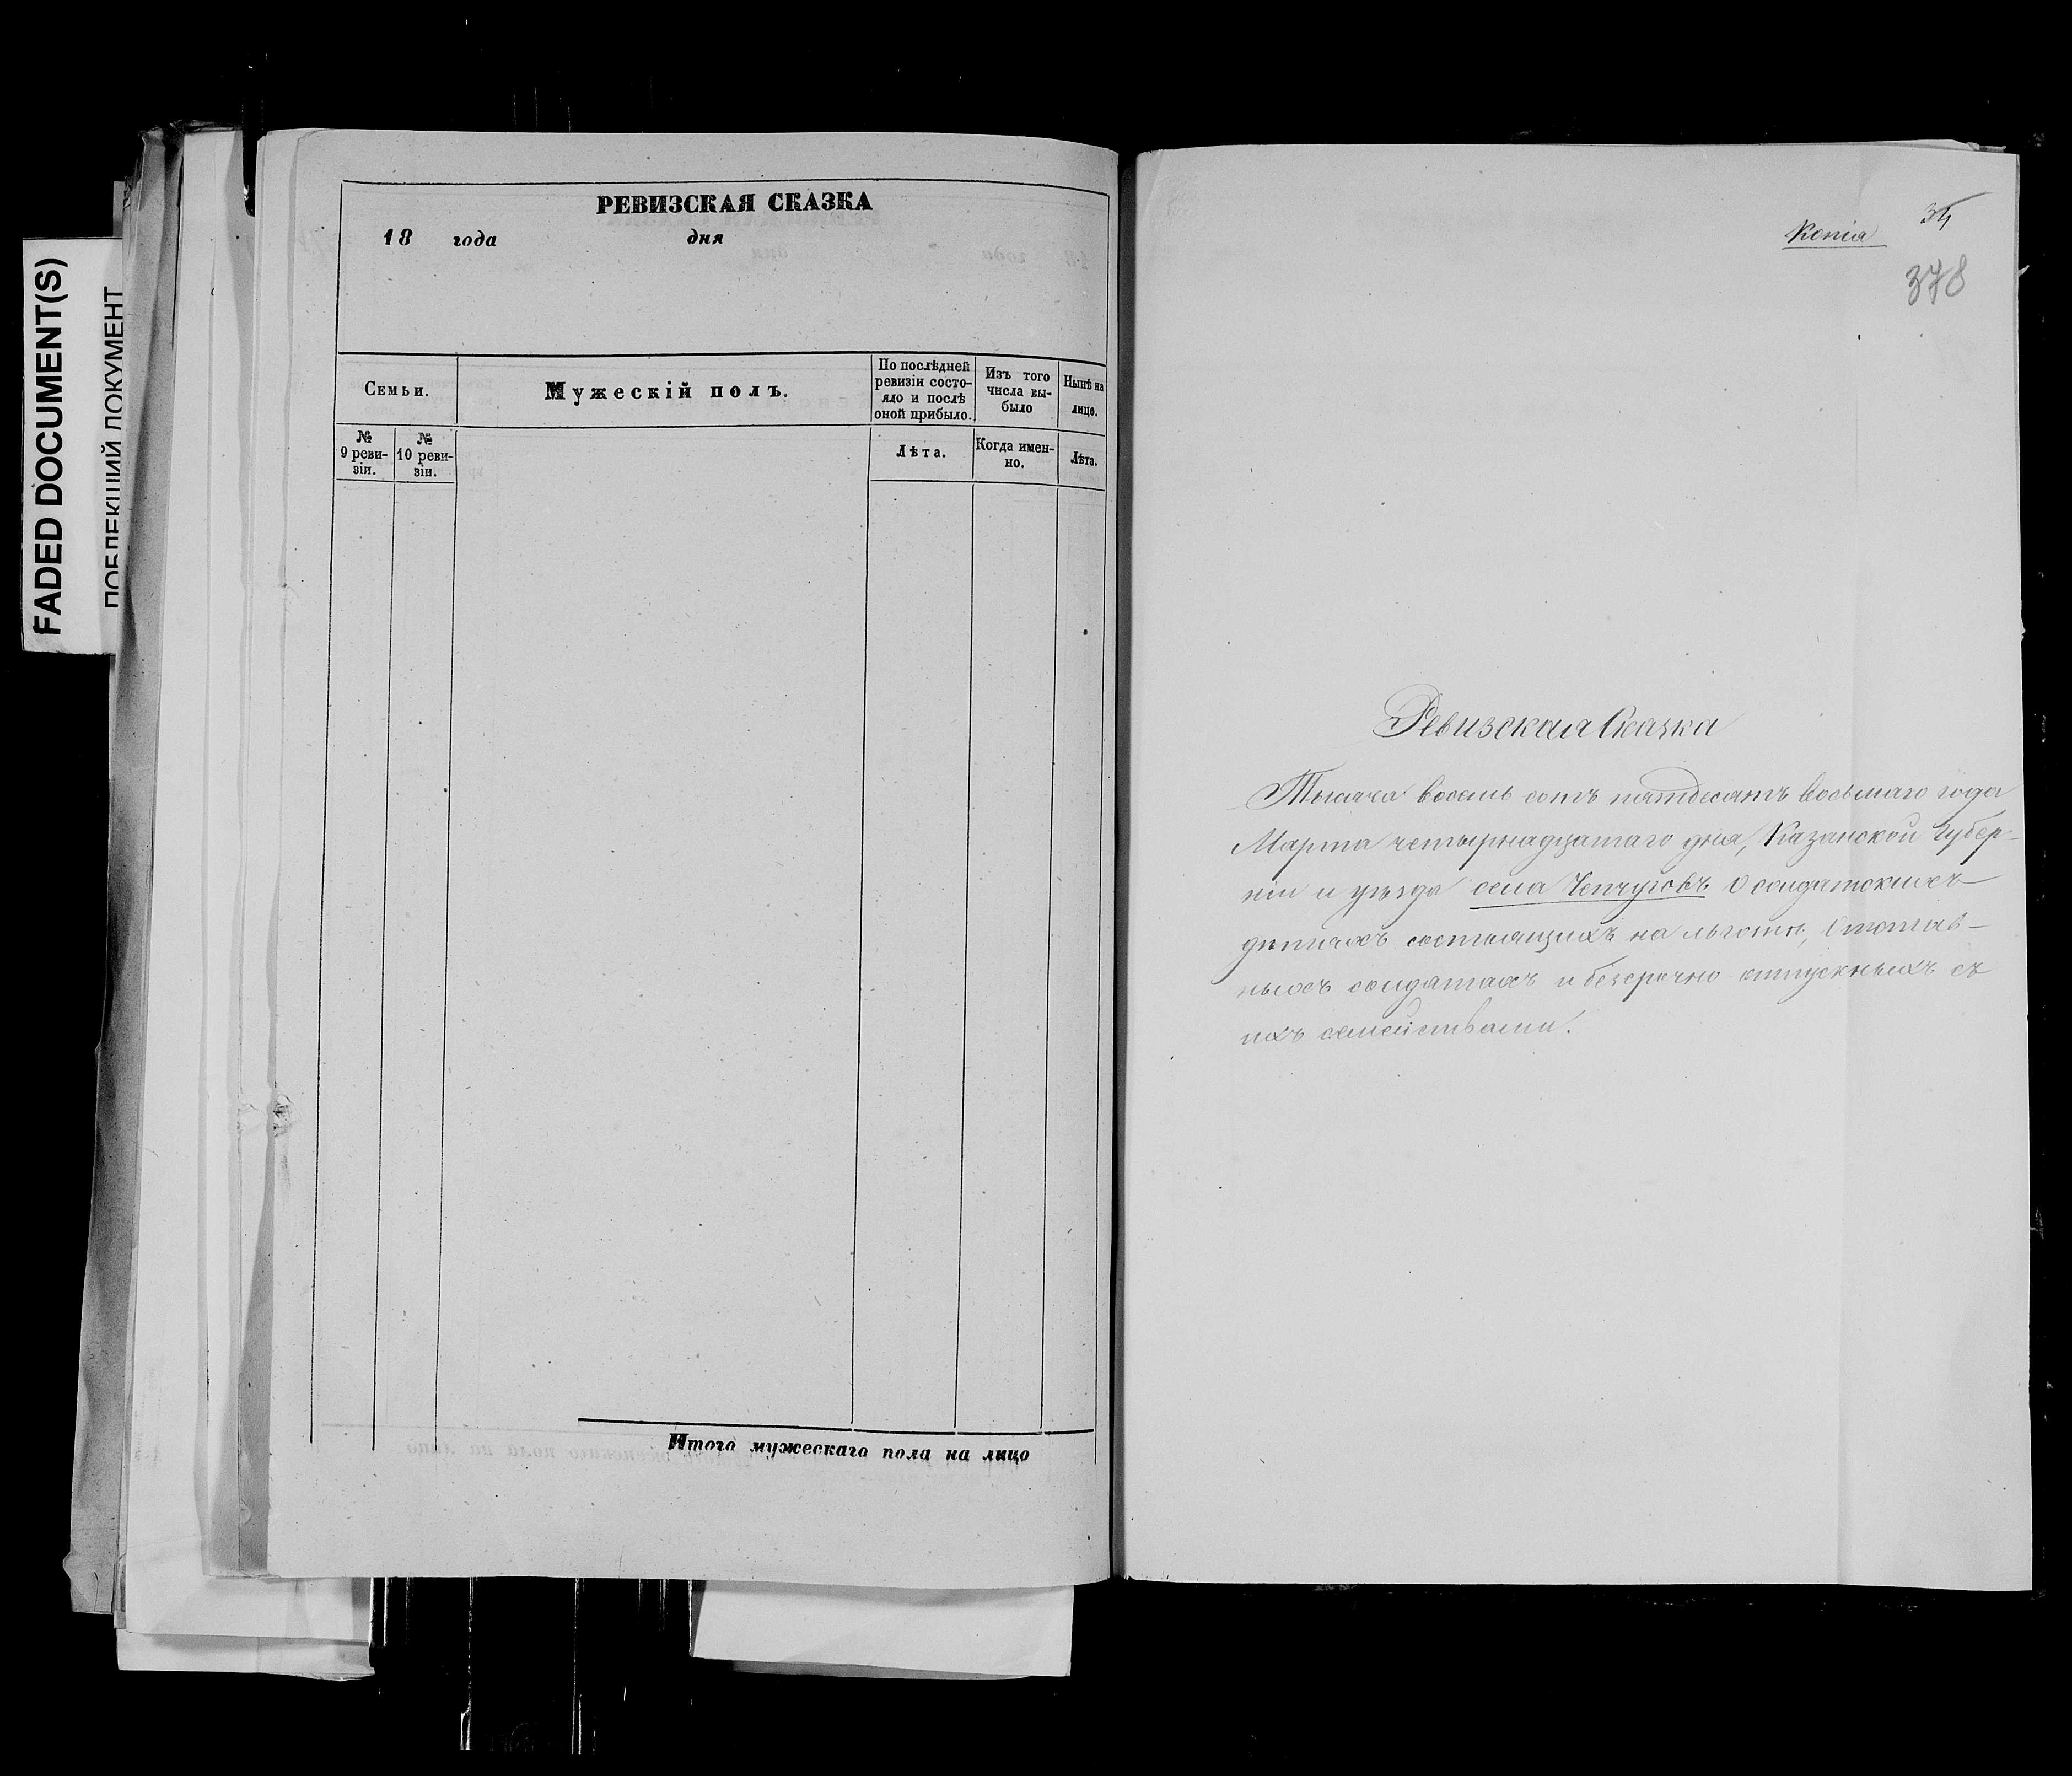 FADED DOCUMENT(S)
ПОБЛЕКШИЙ ДОКУМЕНТ
РЕВИЗСКАЯ СКАЗКА
18 года дня
Семьи.
Мужескій полъ.
По послѣдней
ревизіи состо-
яло и послѣ
оной прибыло.
Изъ того
числа вы-
было
Нынѣ на
лицо.
№
9 реви-
зіи.
№
10 реви-
зіи.
Лѣта.
Когда имен-
но.
Лѣта.
Итого мужескаго пола на лицо
Копія
34
378
Ревизская Сказка
Тысяча восемь сотъ пятдесятъ восьмаго года
Марта четырнадцатаго дня, Казанской Губер-
ніи и уѣзда села Чепчуговъ О солдатскихъ
дѣтяхъ состоящихъ на льготѣ, Отстав-
ныхъ солдатахъ и безсрочно отпускныхъ съ
ихъ семействами.